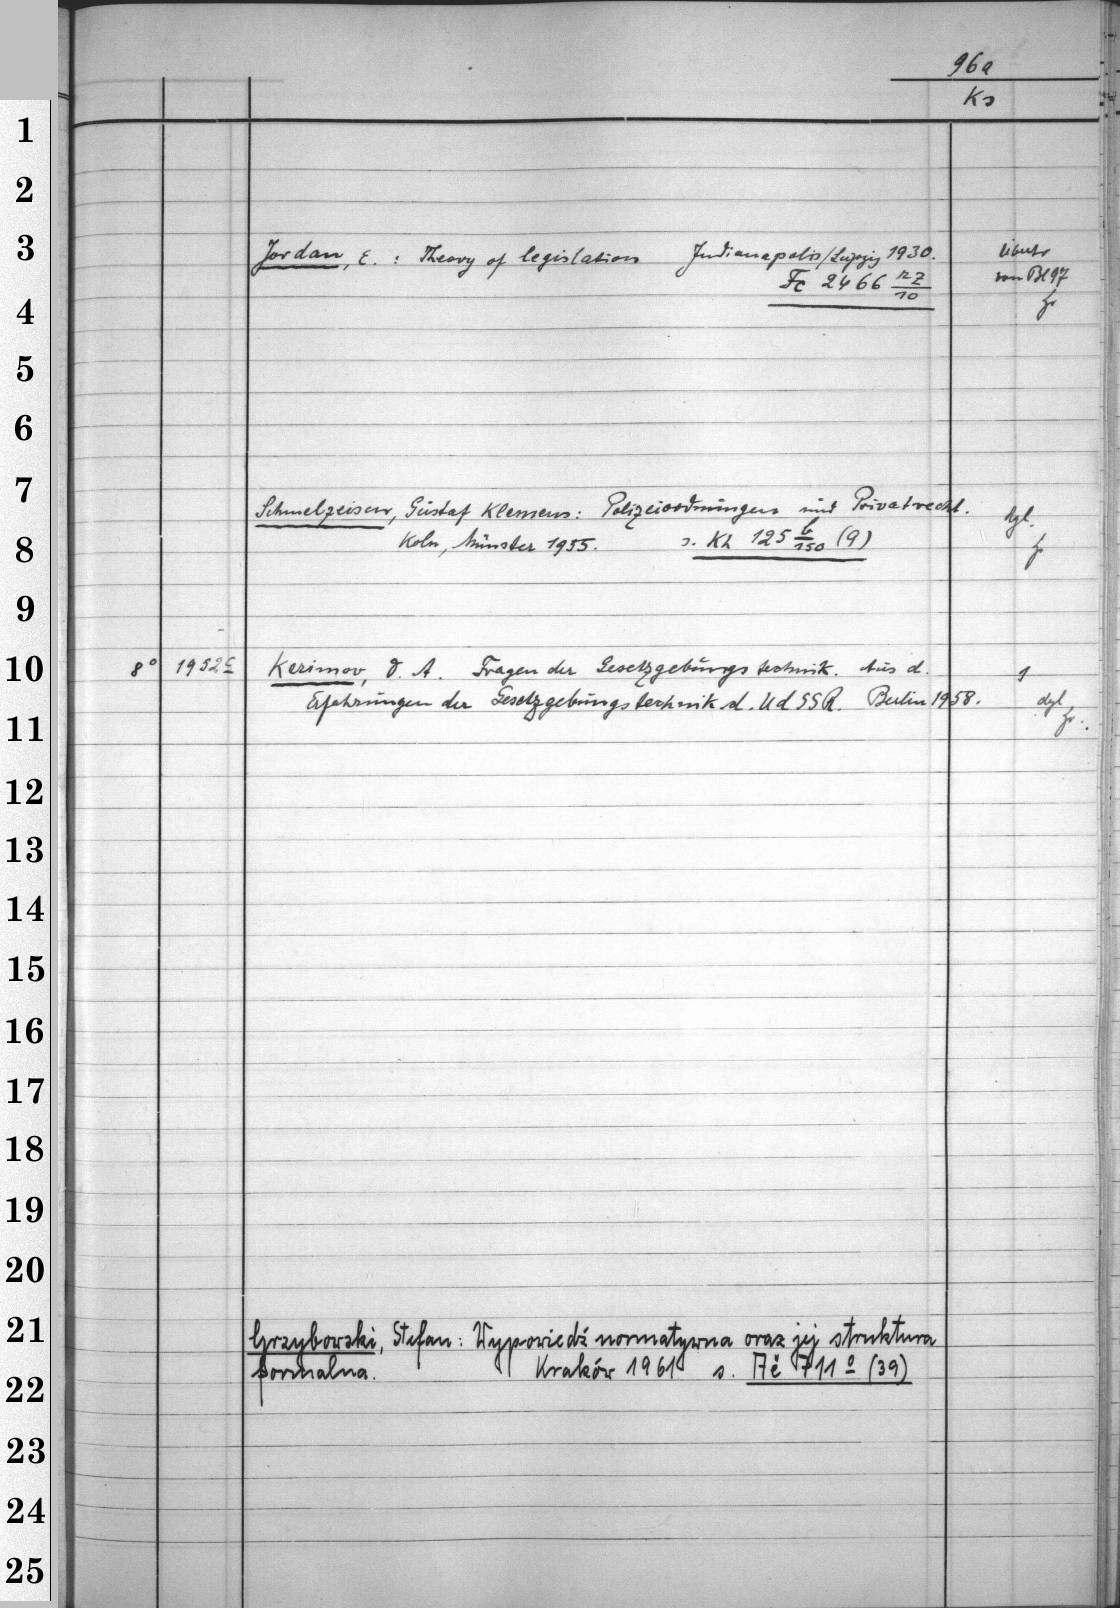 96a
Ks
1
2
3
Jordan, E. : Theory of legislation Indianapolis/Leipzig 1930.
Fc 2466 nz/10
übertr
von Bl 97
fr
4
5
6
7
Schmelzeisen, Gustaf Klemens: Polizeiordnungen und Privatrecht.
dgl.
8
Köln, Münster 1955. s. Kh 125 b/150 (9)
fr
9
10
8° 1952 c Kerimov, D. A. Fragen der Gesetzgebungstechnik. Aus d.
1
Erfahrungen der Gesetzgebungstechnik d. UdSSR. Berlin 1958.
dgl.
fr.
11
12
13
14
15
16
17
18
19
20
21
Grzybowski, Stefan: Wypowiedź normatywna oraz jej struktura
formalna. Kraków 1961 s. Ač 711 o (39)
22
23
24
25